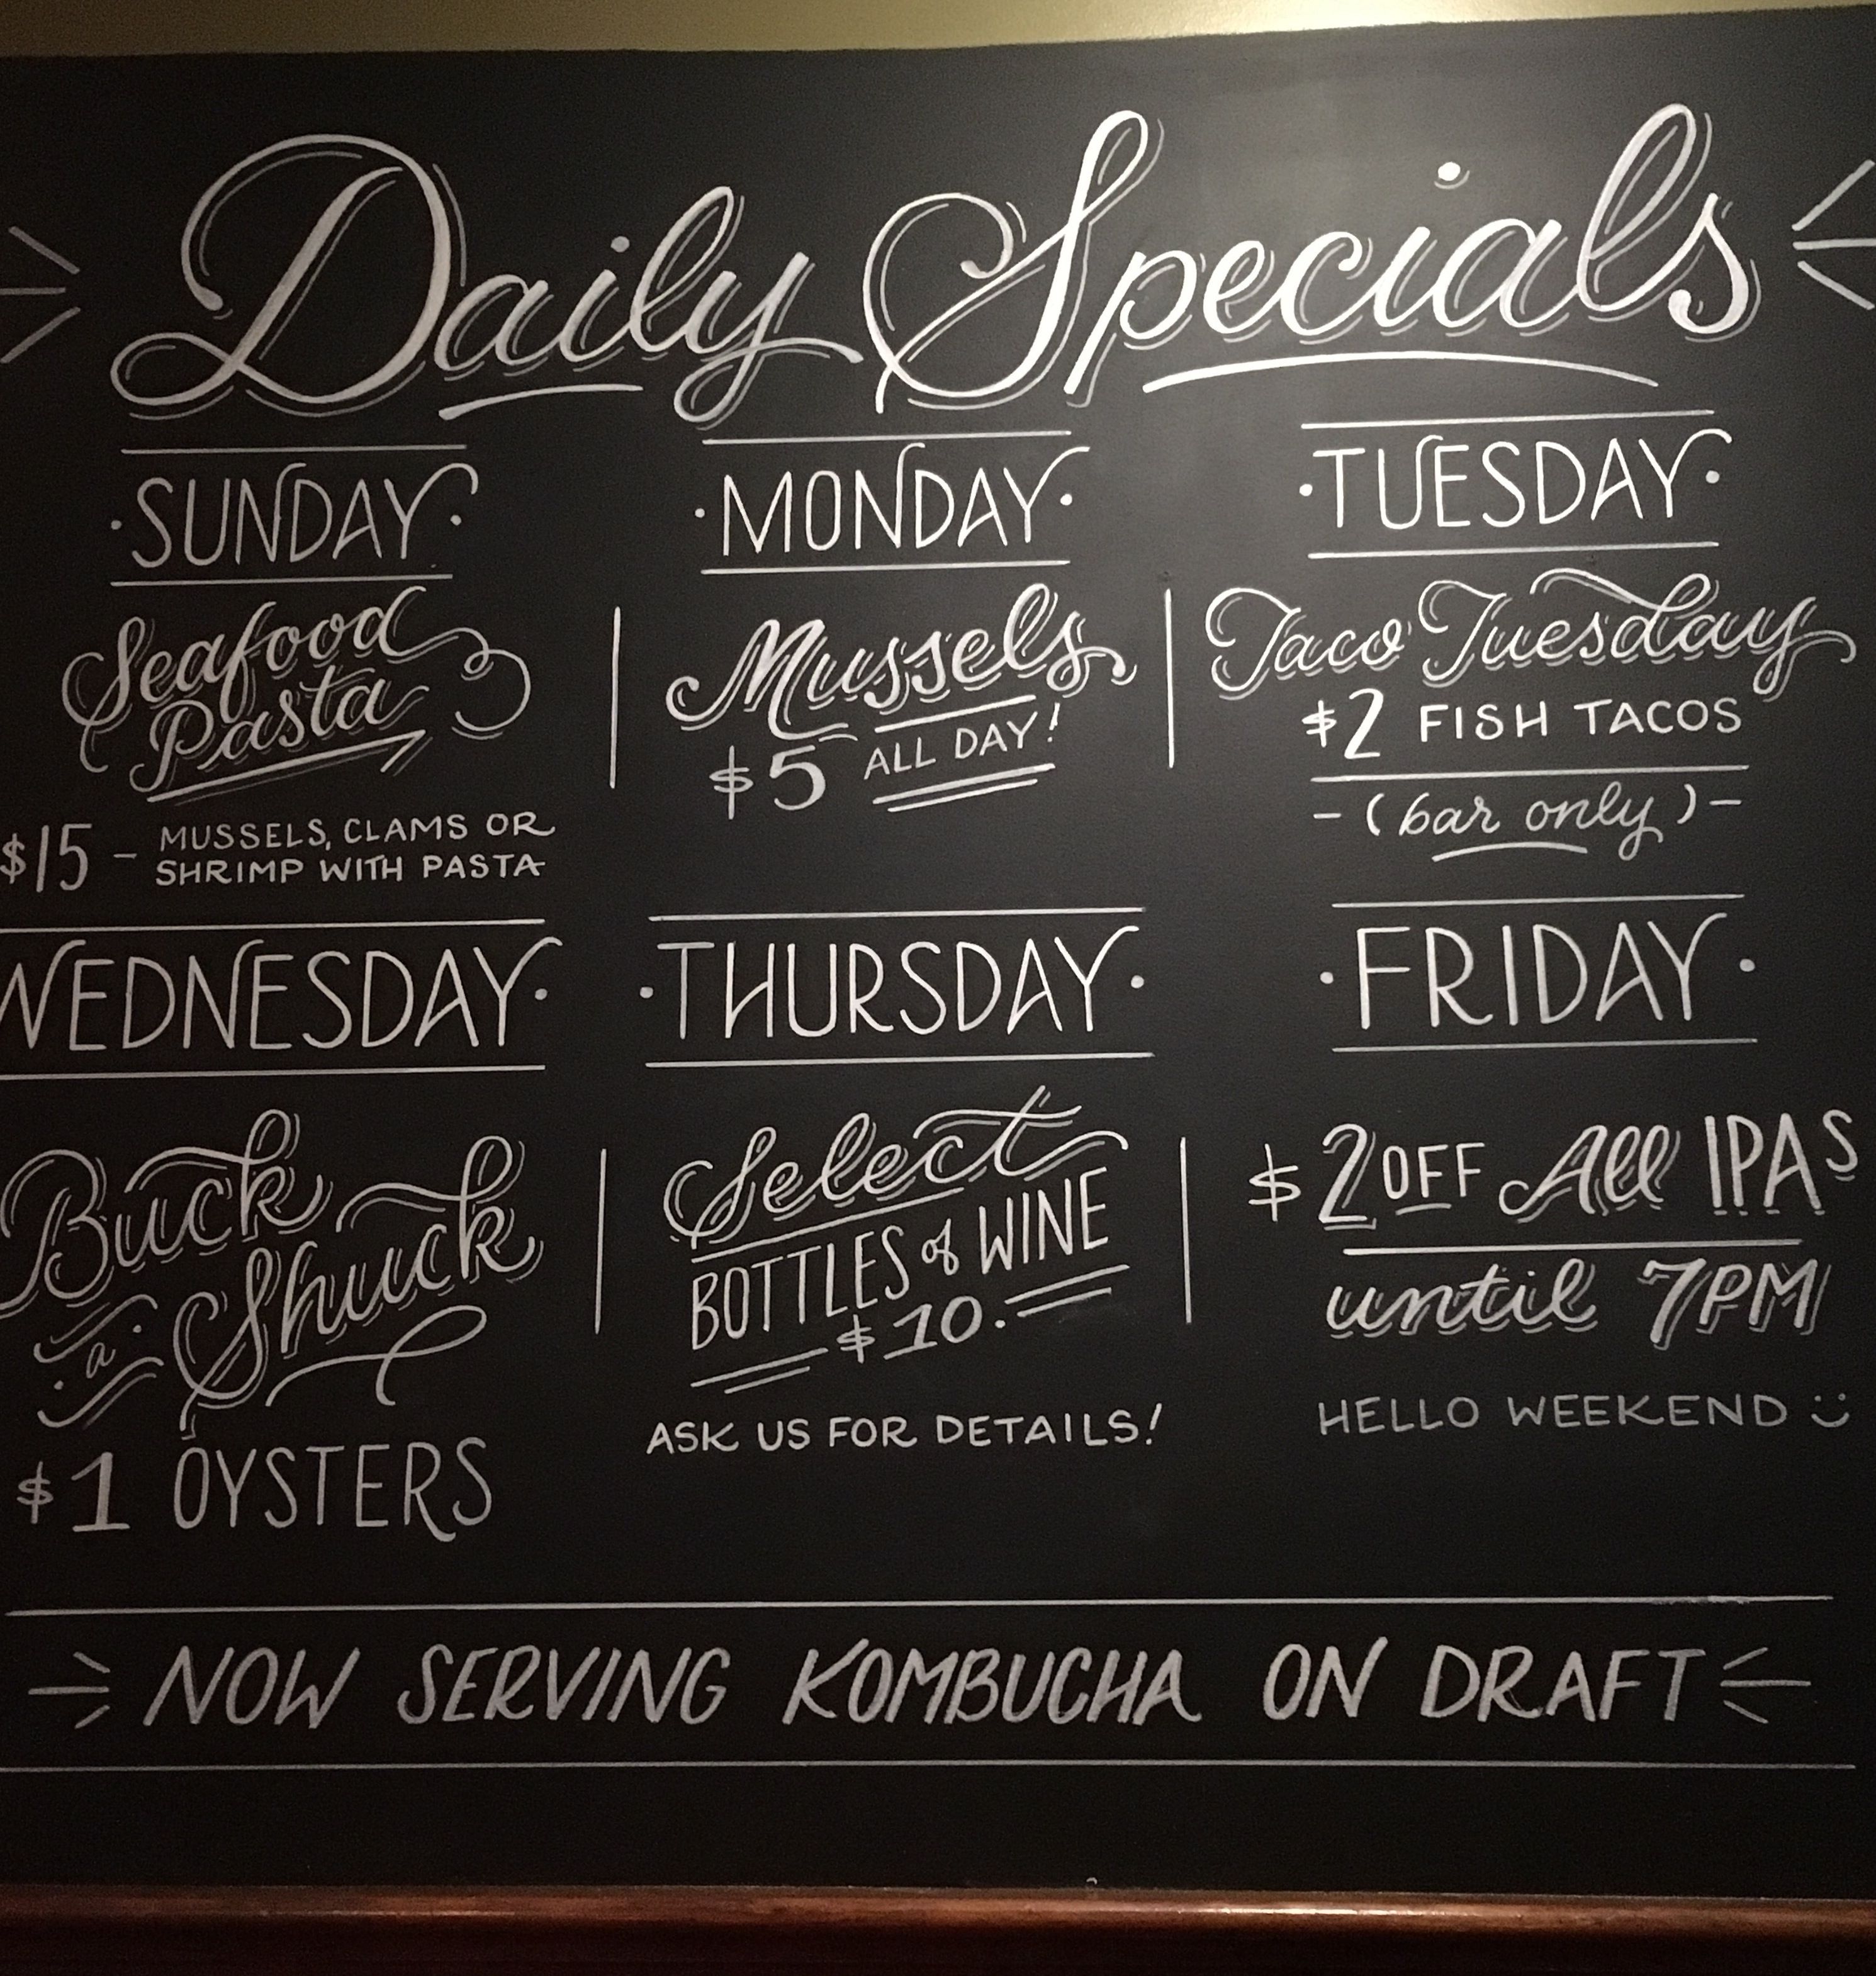 Daily Specials
SUNDAY
Seafood
Pasta
$15 - MUSSELS, CLAMS OR
SHRIMP WITH PASTA
MONDAY
Mussels
$5 ALL DAY!
TUESDAY
Taco Tuesday
$2 FISH TACOS
-(bar only)-
WEDNESDAY
Buck
a Shuck
$1 OYSTERS
THURSDAY
Select
BOTTLES of WINE
$10.
ASK US FOR DETAILS!
FRIDAY
$2 OFF All IPAS
until 7PM
HELLO WEEKEND :)
NOW SERVING KOMBUCHA ON DRAFT